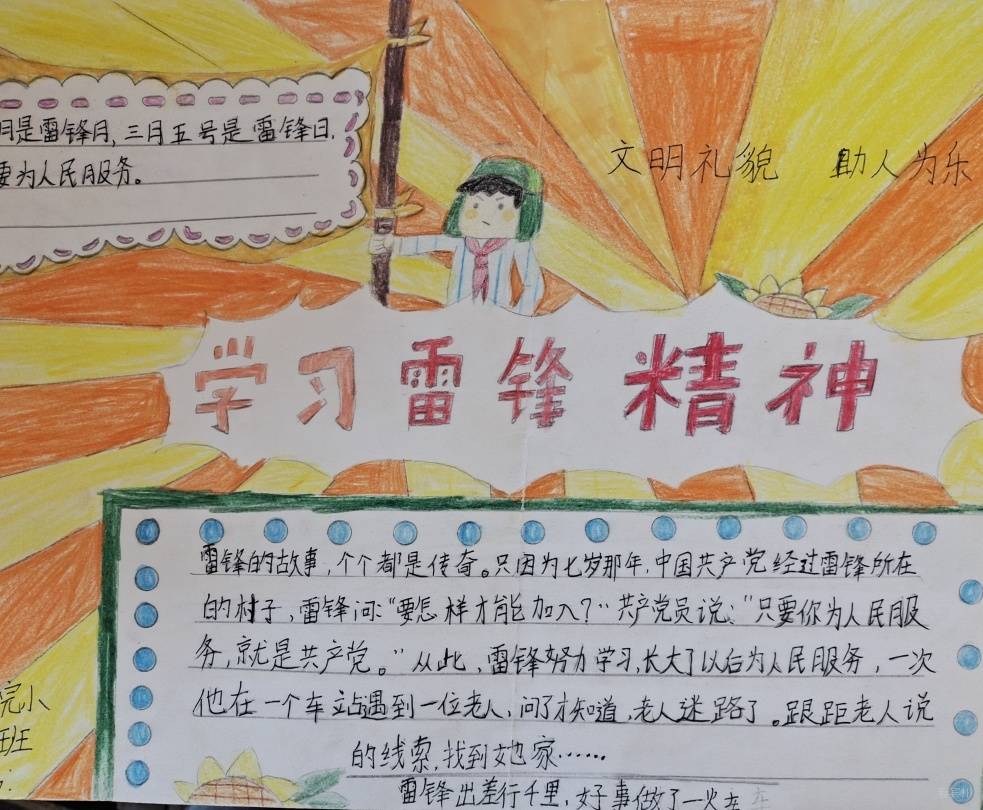 月是雷锋月,三月五号是雷锋日.
要为人民服务。
文明礼貌 助人为乐
学习雷锋精神
雷锋的故事,个个都是传奇。只因为七岁那年,中国共产党经过雷锋所在
的村子,雷锋问:“要怎样才能加入?”共产党员说:“只要你为人民服
务,就是共产党。”从此,雷锋努力学习,长大了以后为人民服务,一次
他在一个车站遇到一位老人,问了才知道,老人迷路了。跟距老人说
的线索,找到她家……
雷锋出差行千里,好事做了一火车
小
班